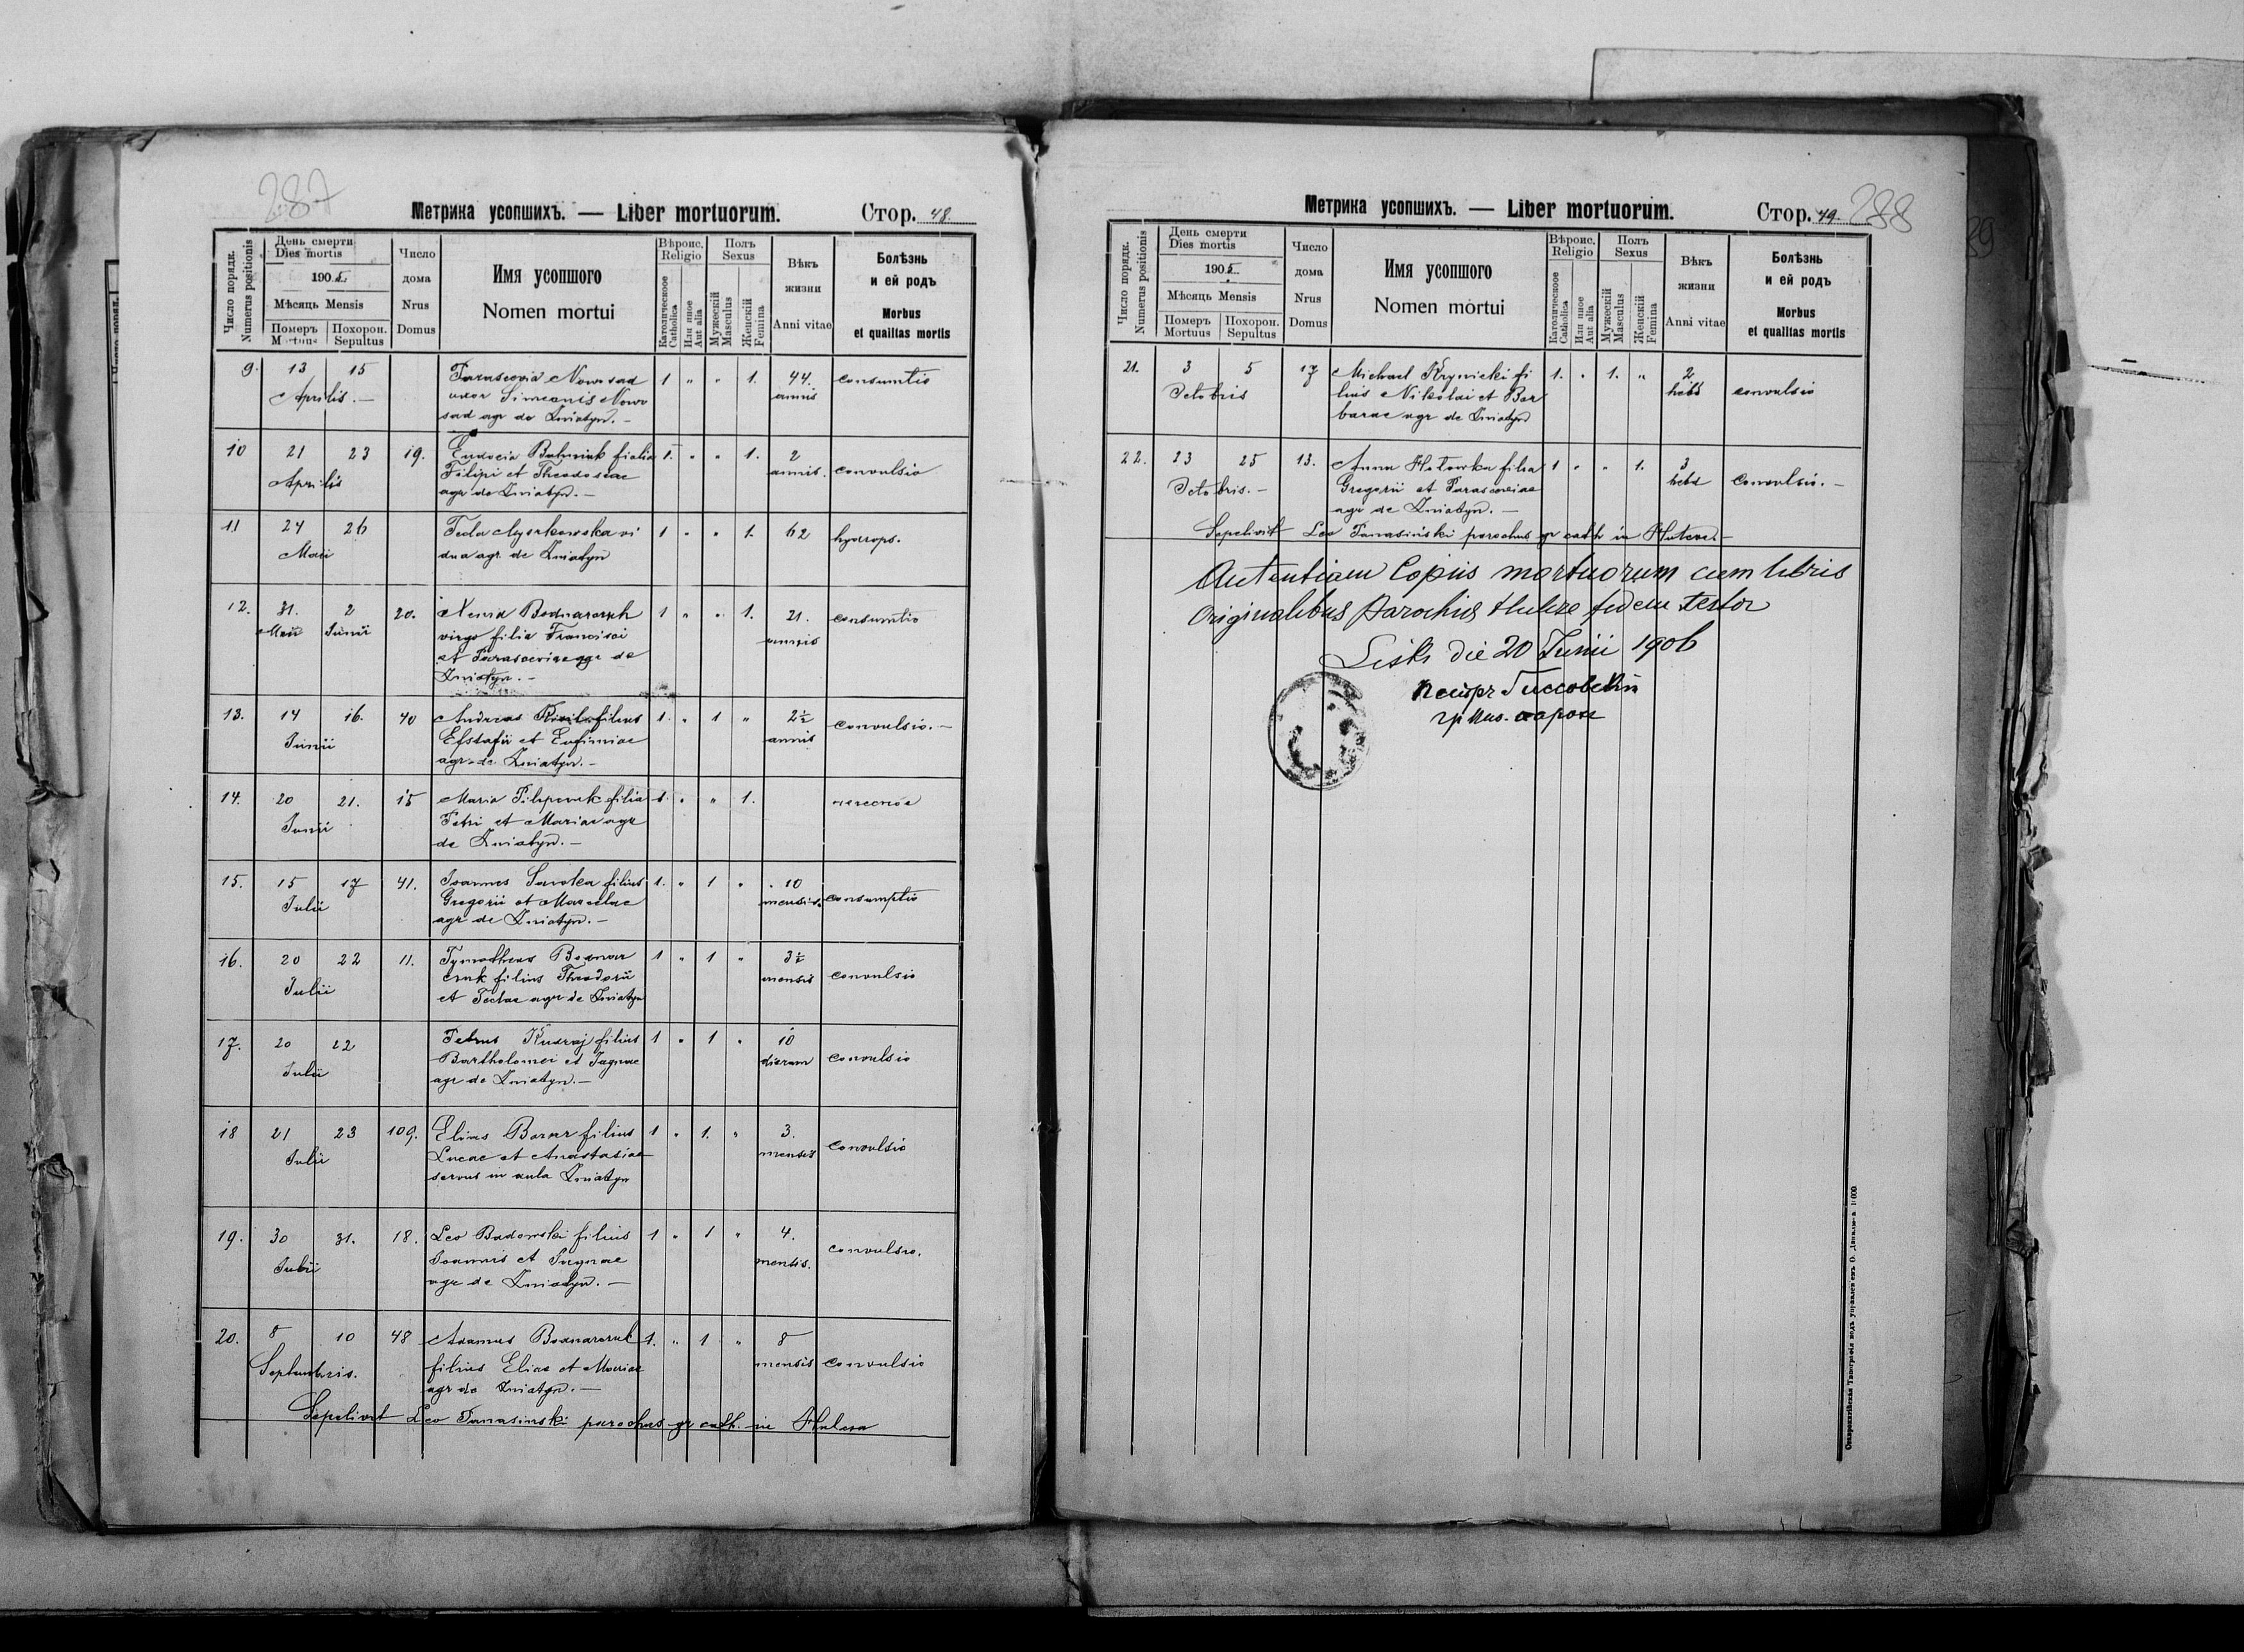 287
Метрика усопшихъ. — Liber mortuorum.
Стор. 48.
Число порядк.
Numerus positionis
День смерти
Dies mortis
1905.
Мѣсяць Mensis
Померъ
Mortuus
Похорон.
Sepultus
Число
дома
Nrus
Domus
Имя усопшого
Nomen mortui
Вѣроис.
Religio
Католическое
Catholica
Или иное
Aut alia
Полъ
Sexus
Мужескій
Masculus
Женскій
Femina
Вѣкъ
жизни
Anni vitae
Болѣзнь
и ей родъ
Morbus
et qualitas mortis
9. 13 15 Parascevia Nowosad 1 " " 1. 44. consumtio
Aprilis. — uxor Simeonis Nowo annis
sad agr de Zwiatyn. —
10 21 23 19. Eudocia Bohniuk filia 1. " " 1. 2
Aprilis Filipi et Theodosiae annis. convulsio
agr de Zwiatyn. —
11 24 26 Tecla Myszkowska vi 1 " " 1. 62 hydrops.
Maii dua agr. de Zwiatyn
12. 31. 2 20. Xenia Bodnarczuk 1 " " 1. 21. consumtio
Maii Junii virgo filia Francisci annis
et Parasceviae agr de
Zwiatyn. —
13. 14 16. 40 Andreas filius 1. " 1 " 2½ convulsio. —
Junii Efstafii et Eufimiae annis
agr de Zwiatyn. —
14. 20 21. 15 Maria Pilipczuk filia 1. " " 1.
Junii Petri et Mariae agr
de Zwiatyn. —
15. 15 17 41. Joannes Saroka filius 1. " 1 " 10
Julii Gregorii et Marelae mensis. consumptio
agr de Zwiatyn. —
16. 20 22 11. Tymotheus Bodnar 1 " 1 " 3½
Julii czuk filius Theodorii mensis convulsio
et Teclae agr de Zwiatyn
17. 20 22 Petrus Kudraj filius 1 " 1 " 10
Julii Bartholomei et Jagnae dierum convulsio
agr de Zwiatyn. —
18 21 23 109. Elias filius 1 " 1. " 3.
Julii Lucae et Anastasiae mensis convulsio
servus in aula Zwiatyn
19. 30 31. 18. Leo Badowski filius 1 " 1 " 4.
Julii Joannis et Jagnae mensis. convulsio.
agr de Zwiatyn. —
20. 8 10 48 Adamus Bodnarczuk 1. " 1 " 8
Septembris. filius Eliae et Mariae mensis convulsio
agr de Zwiatyn. —
Sepelivit Leo Panasinski parochus gr cath. in Hulcza
Метрика усопшихъ. — Liber mortuorum.
Стор. 49.
288
Число порядк.
Numerus positionis
День смерти
Dies mortis
1905.
Мѣсяць Mensis
Померъ
Mortuus
Похорон.
Sepultus
Число
дома
Nrus
Domus
Имя усопшого
Nomen mortui
Вѣроис.
Religio
Католическое
Catholica
Или иное
Aut alia
Полъ
Sexus
Мужескій
Masculus
Женскій
Femina
Вѣкъ
жизни
Anni vitae
Болѣзнь
и ей родъ
Morbus
et qualitas mortis
21. 3 5 17 Michael Krynicki fi 1. " 1. " 2
Octobris lius Nikolai et Bar hebd convulsio
barae agr de Zwiatyn
22. 23 25 13. Anna filia 1 " " 1. 3
Octobris. — Gregorii et Parasceviae hebd convulsio. —
agr de Zwiatyn. —
Sepelivit Leo Panasiński parochus gr cath in Hulcza. —
Autentiam Copiis mortuorum cum libris
Originalibus Parochius Hulcze fidem testor
die 20 Junii 1906
89